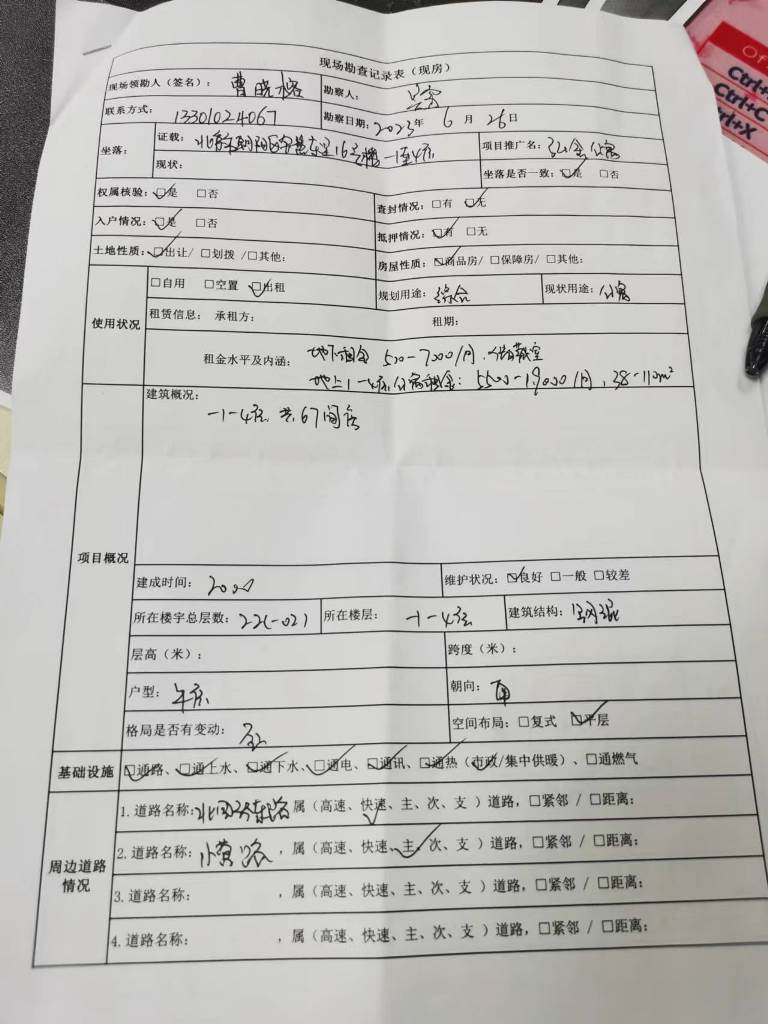 现场勘查记录表（现房）
现场领勘人（签名）： 曹晓榕 勘察人：
联系方式： 13301024067 勘察日期：2023年 6 月 26日
坐落： 证载： 16号楼-1至4层 项目推广名： 公寓
现状： 坐落是否一致：☑是 □否
权属核验：☑是 □否 查封情况：□有 ☑无
入户情况：☑是 □否 抵押情况：☑有 □无
土地性质：☑出让/ □划拨 /□其他： 房屋性质：☑商品房/ □保障房/ □其他：
使用状况 □自用 □空置 ☑出租 规划用途：综合 现状用途：公寓
租赁信息： 承租方： 租期：
租金水平及内涵： 地下租金 500-7000/月
地上1-4层公寓租金：5500-19000/月，38-110m²
项目概况 建筑概况：
-1-4层 共67间房
建成时间： 2000 维护状况：☑良好 □一般 □较差
所在楼宇总层数：22(-02) 所在楼层： -1-4层 建筑结构：钢混
层高（米）： 跨度（米）：
户型： 平层 朝向： 南
格局是否有变动： 空间布局：□复式 ☑平层
基础设施 ☑通路、☑通上水、☑通下水、☑通电、☑通讯、☑通热（市政/集中供暖）、□通燃气
周边道路情况 1.道路名称：北四环东路 属（高速、快速、主、次、支 ）道路，□紧邻 / □距离：
2.道路名称： 小营路 ，属（高速、快速、主、次、支 ）道路，□紧邻 / □距离：
3.道路名称： ，属（高速、快速、主、次、支 ）道路，□紧邻 / □距离：
4.道路名称： ，属（高速、快速、主、次、支 ）道路，□紧邻 / □距离：
Ctrl+C
Ctrl+X